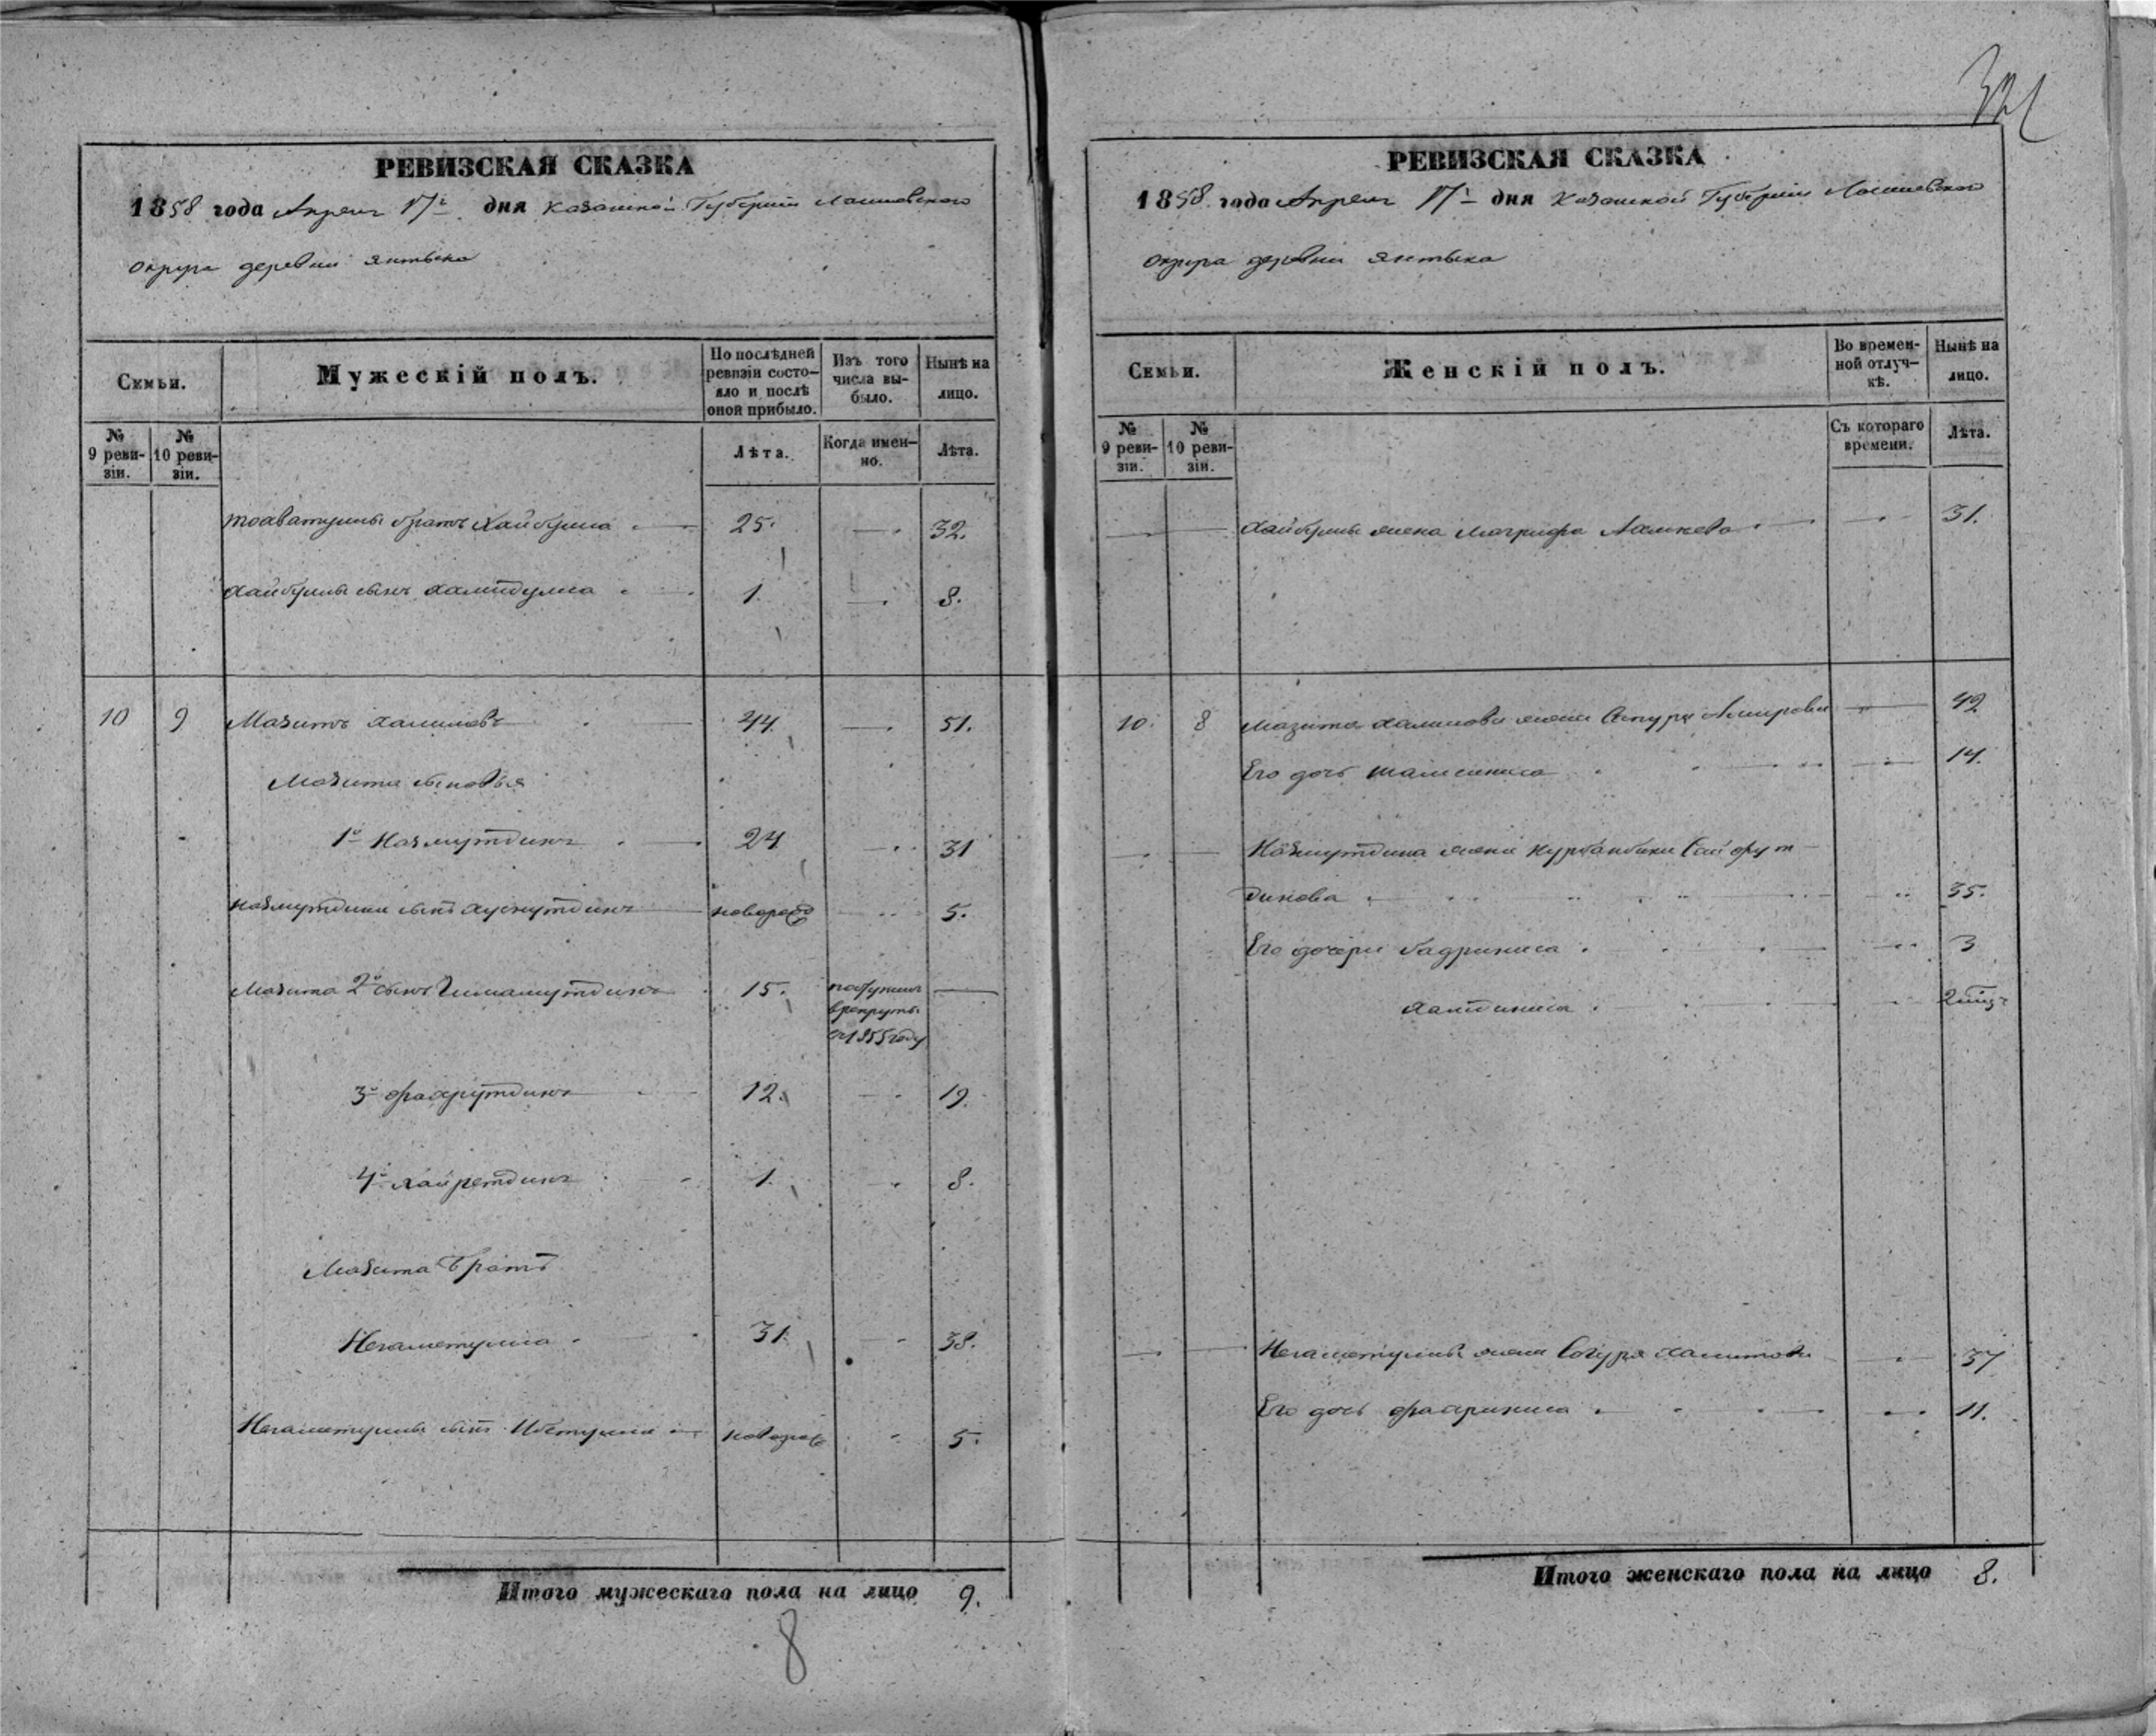 321
РЕВИЗСКАЯ СКАЗКА
1858 года Апреля 17 дня Казанской Губерніи Лаишевскаго
округа деревни Янтыка
Семьи.
Мужескій полъ.
По послѣдней ревизіи состояло и послѣ оной прибыло.
Изъ того числа выбыло.
Нынѣ на лицо.
№ 9 ревизіи.
№ 10 ревизіи.
Лѣта.
Когда именно.
Лѣта.
братъ Хайбулла 25. 32.
Хайбуллы сынъ Хамидулла 1. 8.
10 9 Мазитъ Халиловъ 44. 51.
Мазита сыновья
1й Назмутдинъ 24 31
Назмутдина сынъ Хуснутдинъ новорожд 5.
Мазита 2й сынъ 15. поступилъ
в рекруты
в 1855 году
3й Фахрутдинъ 12. 19.
4й Хайретдинъ 1. 8.
Мазита братъ
Негаметулла 31. 38.
Негаметуллы сынъ новорож 5.
Итого мужескаго пола на лицо 9.
8
РЕВИЗСКАЯ СКАЗКА
1858 года Апреля 17 дня Казанской Губерніи Лаишевскаго
округа деревни Янтыка
Семьи.
Женскій полъ.
Во временной отлучкѣ.
Нынѣ на лицо.
№ 9 ревизіи.
№ 10 ревизіи.
Съ котораго времени.
Лѣта.
Хайбуллы жена Магрифа 31.
10. 8 Мазита Халилова жена Амирова 42
Его дочь 14.
Назмутдина жена Курбанбика Сайфут
динова 35.
Его дочери Бадриниса 3
2
Негаметуллы жена Хамитова 37
Его дочь Фахриниса 11.
Итого женскаго пола на лицо 8.